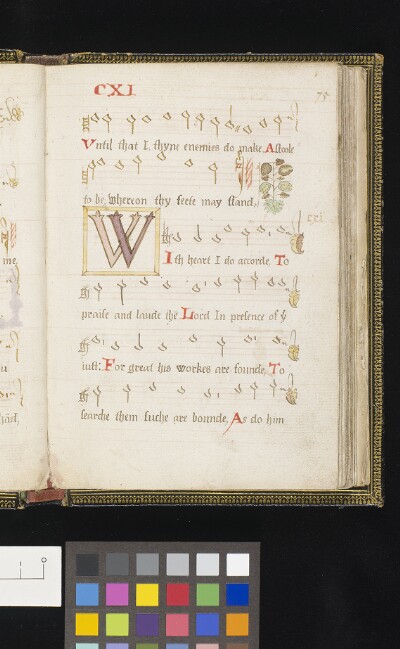 CXI.
75
Vntill that I. thyne enemies do make. A stoole
to be, Whereon thy feete may stand.
cxi
W Ith heart I do accorde. To
praise and laude the Lord In presence of yͤ
iust: For great his workes are founde, To
searche them suche are bounde, As do him
me,